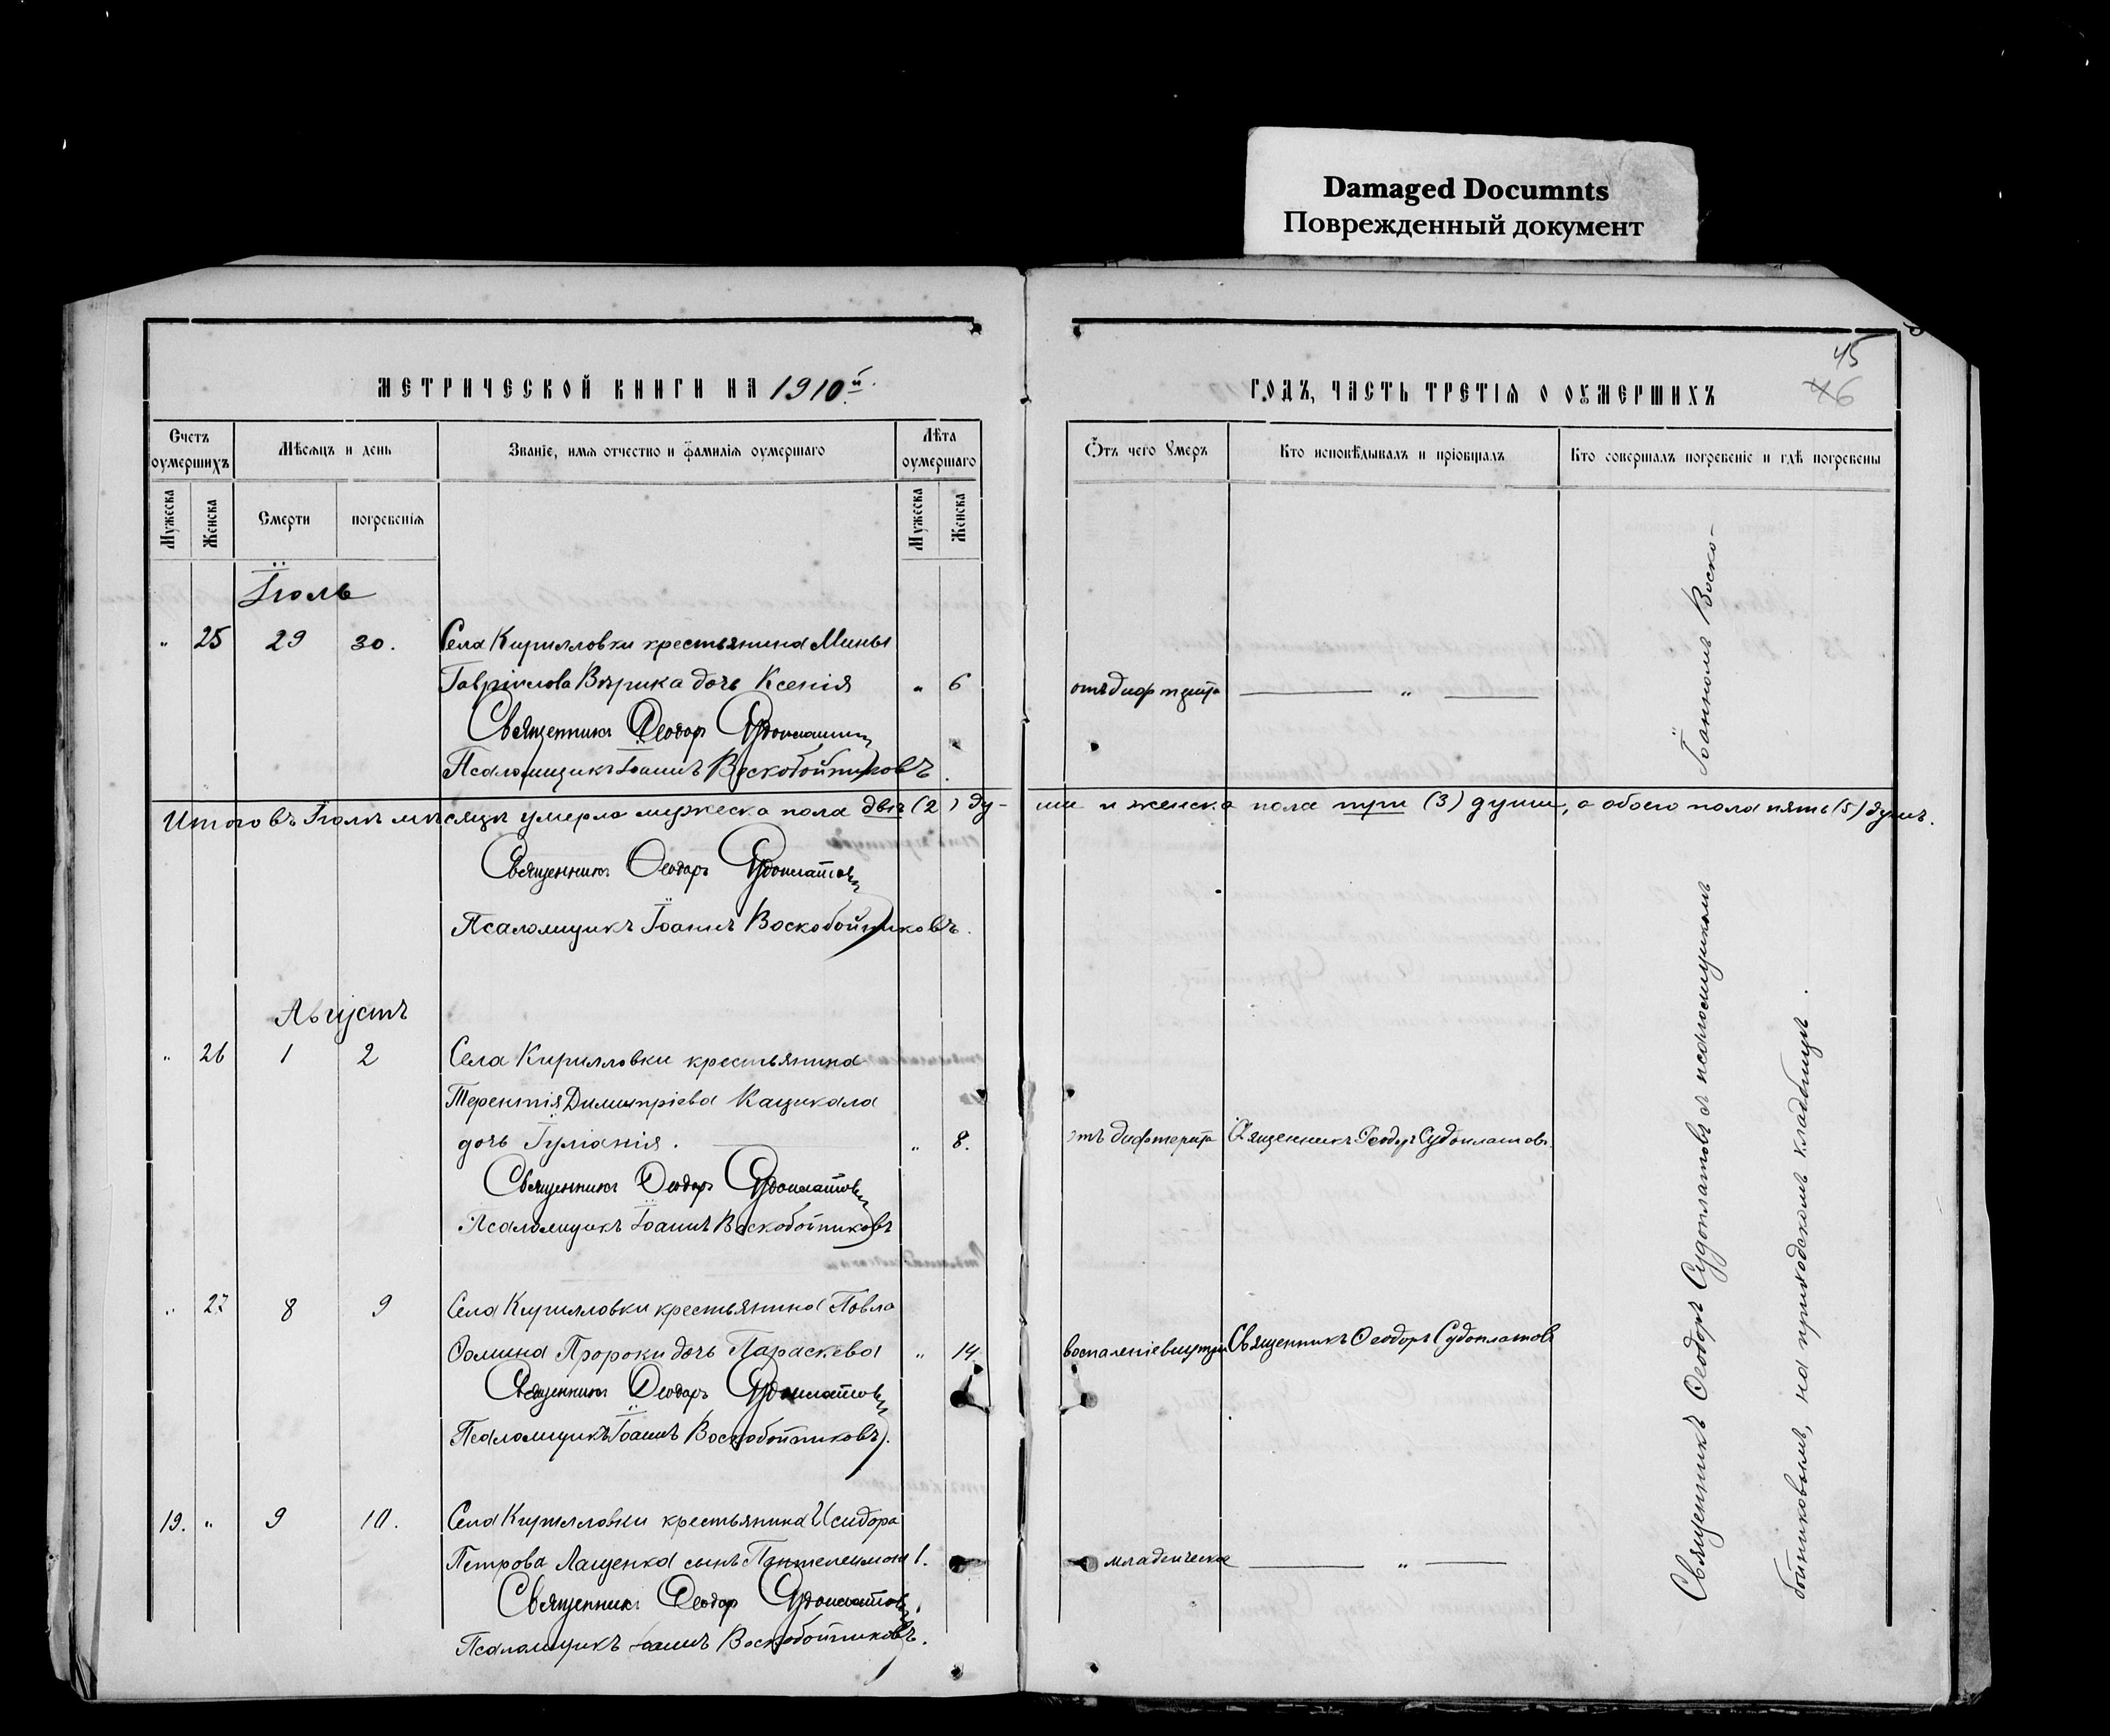 Damaged Documnts
Поврежденный документ
45
46
МЕТРИЧЕСКОЙ КНИГИ НА 1910й
ГОДЪ, ЧАСТЬ ТРЕТІѦ О ОУМЕРШИХЪ
Счетъ оумершихъ
Мѣсѧцъ и день
Званіе, имѧ отчество и фамиліѧ оумершаго
Лѣта оумершаго
Ѿтъ чего Ꙋмеръ
Кто исповѣдывалъ и пріобщалъ
Кто совершалъ погребеніе и гдѣ погребены
Мужеска
Женска
Смерти
погребеніѧ
Мужеска
Женска
Іюль
" 25 29 30. Села Кирилловки крестьянина Мины
Гавріилова Вѣрика дочь Ксенія " 6 отъ дифтерита "
Священникъ Ѳеодоръ Судоплатовъ
Псаломщикъ Іоаннъ Воскобойниковъ.
Итого въ Іюлѣ мѣсяцѣ умерло мужеска пола двѣ (2) ду- ши и женска пола три (3) души, а обоего пола пять (5) душъ.
Священникъ Ѳеодоръ Судоплатовъ
Псаломщикъ Іоаннъ Воскобойниковъ.
Августъ
" 26 1 2 Села Кирилловки крестьянина
Терентія Димитріева Кацикала
дочь Іуліанія. " 8. отъ дифтерита Священникъ Ѳеодоръ Судоплатовъ.
Священникъ Ѳеодоръ Судоплатовъ
Псаломщикъ Іоаннъ Воскобойниковъ
" 27 8 9 Села Кирилловки крестьянина Павла
Ѳомина Пророки дочь Параскева " 14. воспаленіе Священникъ Ѳеодоръ Судоплатовъ
Священникъ Ѳеодоръ Судоплатовъ
Псаломщикъ Іоаннъ Воскобойниковъ.
19. " 9 10. Села Кирилловки крестьянина Исидора
Петрова Лащенка сынъ Пантелеимонъ 1. младенческая "
Священникъ Ѳеодоръ Судоплатовъ
Псаломщикъ Іоаннъ Воскобойниковъ.
Священникъ Ѳеодоръ Судоплатовъ съ псаломщикомъ Іоанномъ Воско-
бойниковымъ, на приходскомъ кладбищѣ.